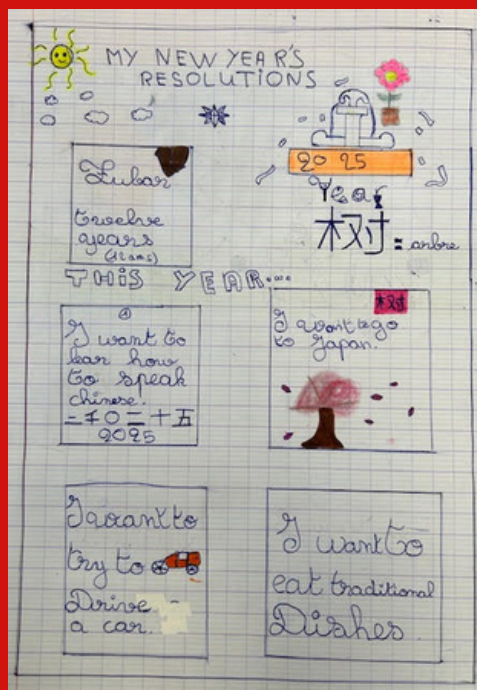 MY NEW YEAR'S
RESOLUTIONS
20 25
Year
树 = arbre
twelve
years
THIS YEAR....
I want to
lear how
to speak
chinese.
二千〇二十五
2025
树
I want to go
to Japan.
I want to
try to
Drive
a car.
I want to
eat traditional
Dishes.